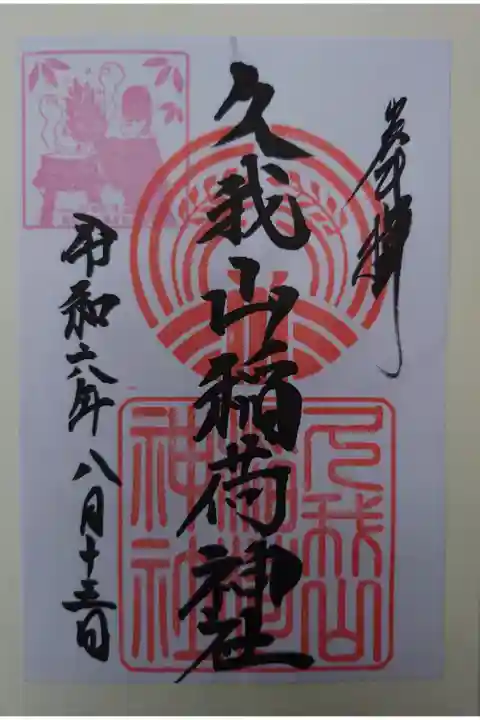 奉拝
久我山稲荷神社
久我山
稲荷
神社
令和六年八月十三日